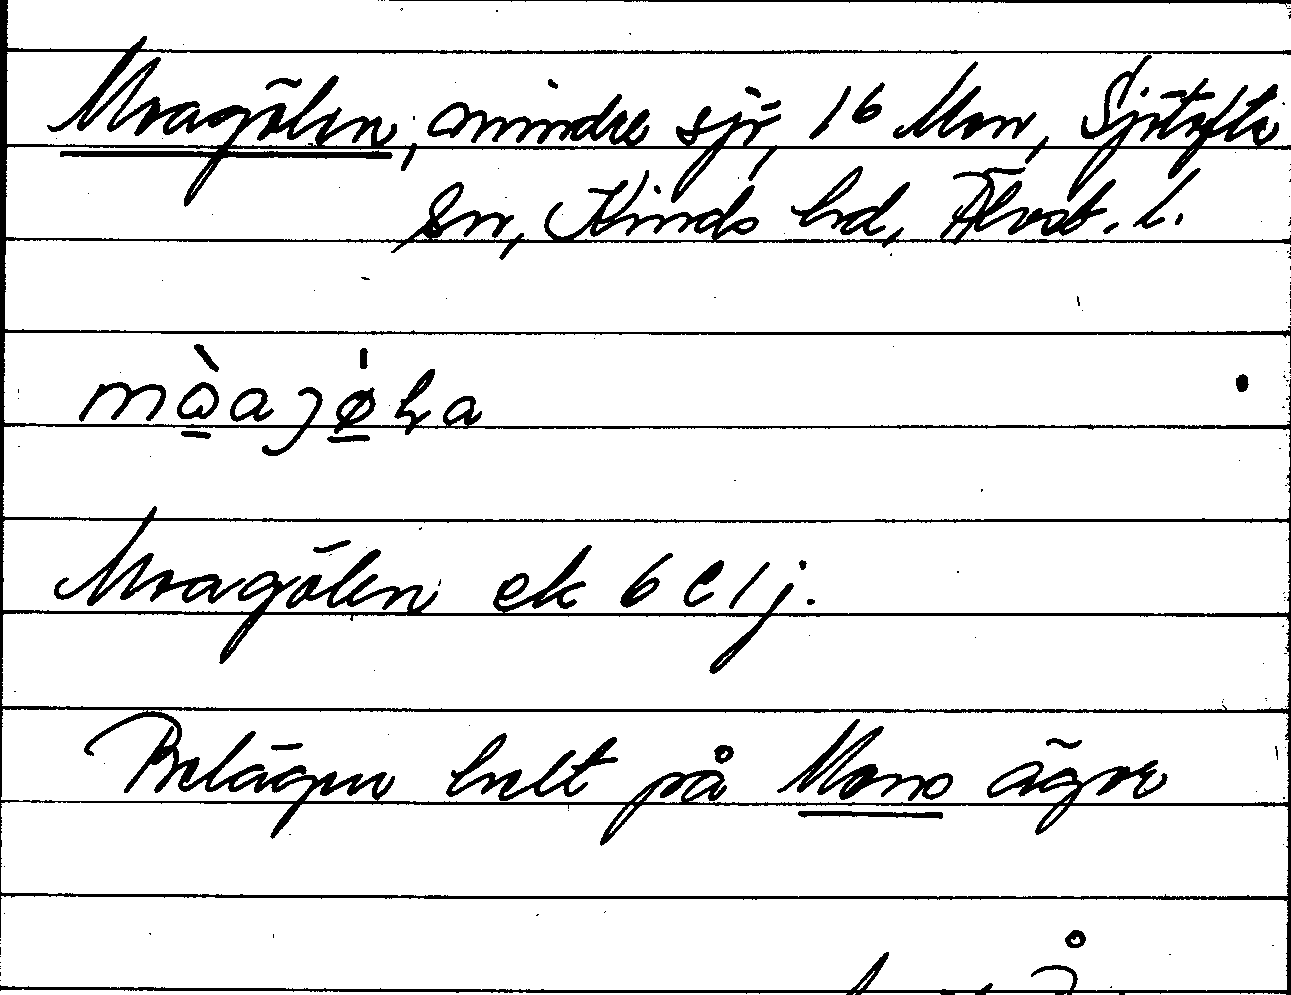 Moagölen, mindre sjö, 16 Mon, Sjötofta
sn, Kinds hd, Älvsb. l.
mòajøla
Moagölen ek 6 e 1 j.
Belägen helt på Mons ägor